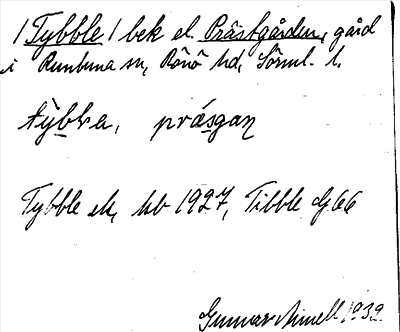 /Tybble/ bek el. Prästgården, gård
i Runtuna sn, Rönö hd, Söml. l.
tỳbla, prásgaŋ
Tybble ek, hb 1927, Tibble G 66
Gunnar Nimell 1939